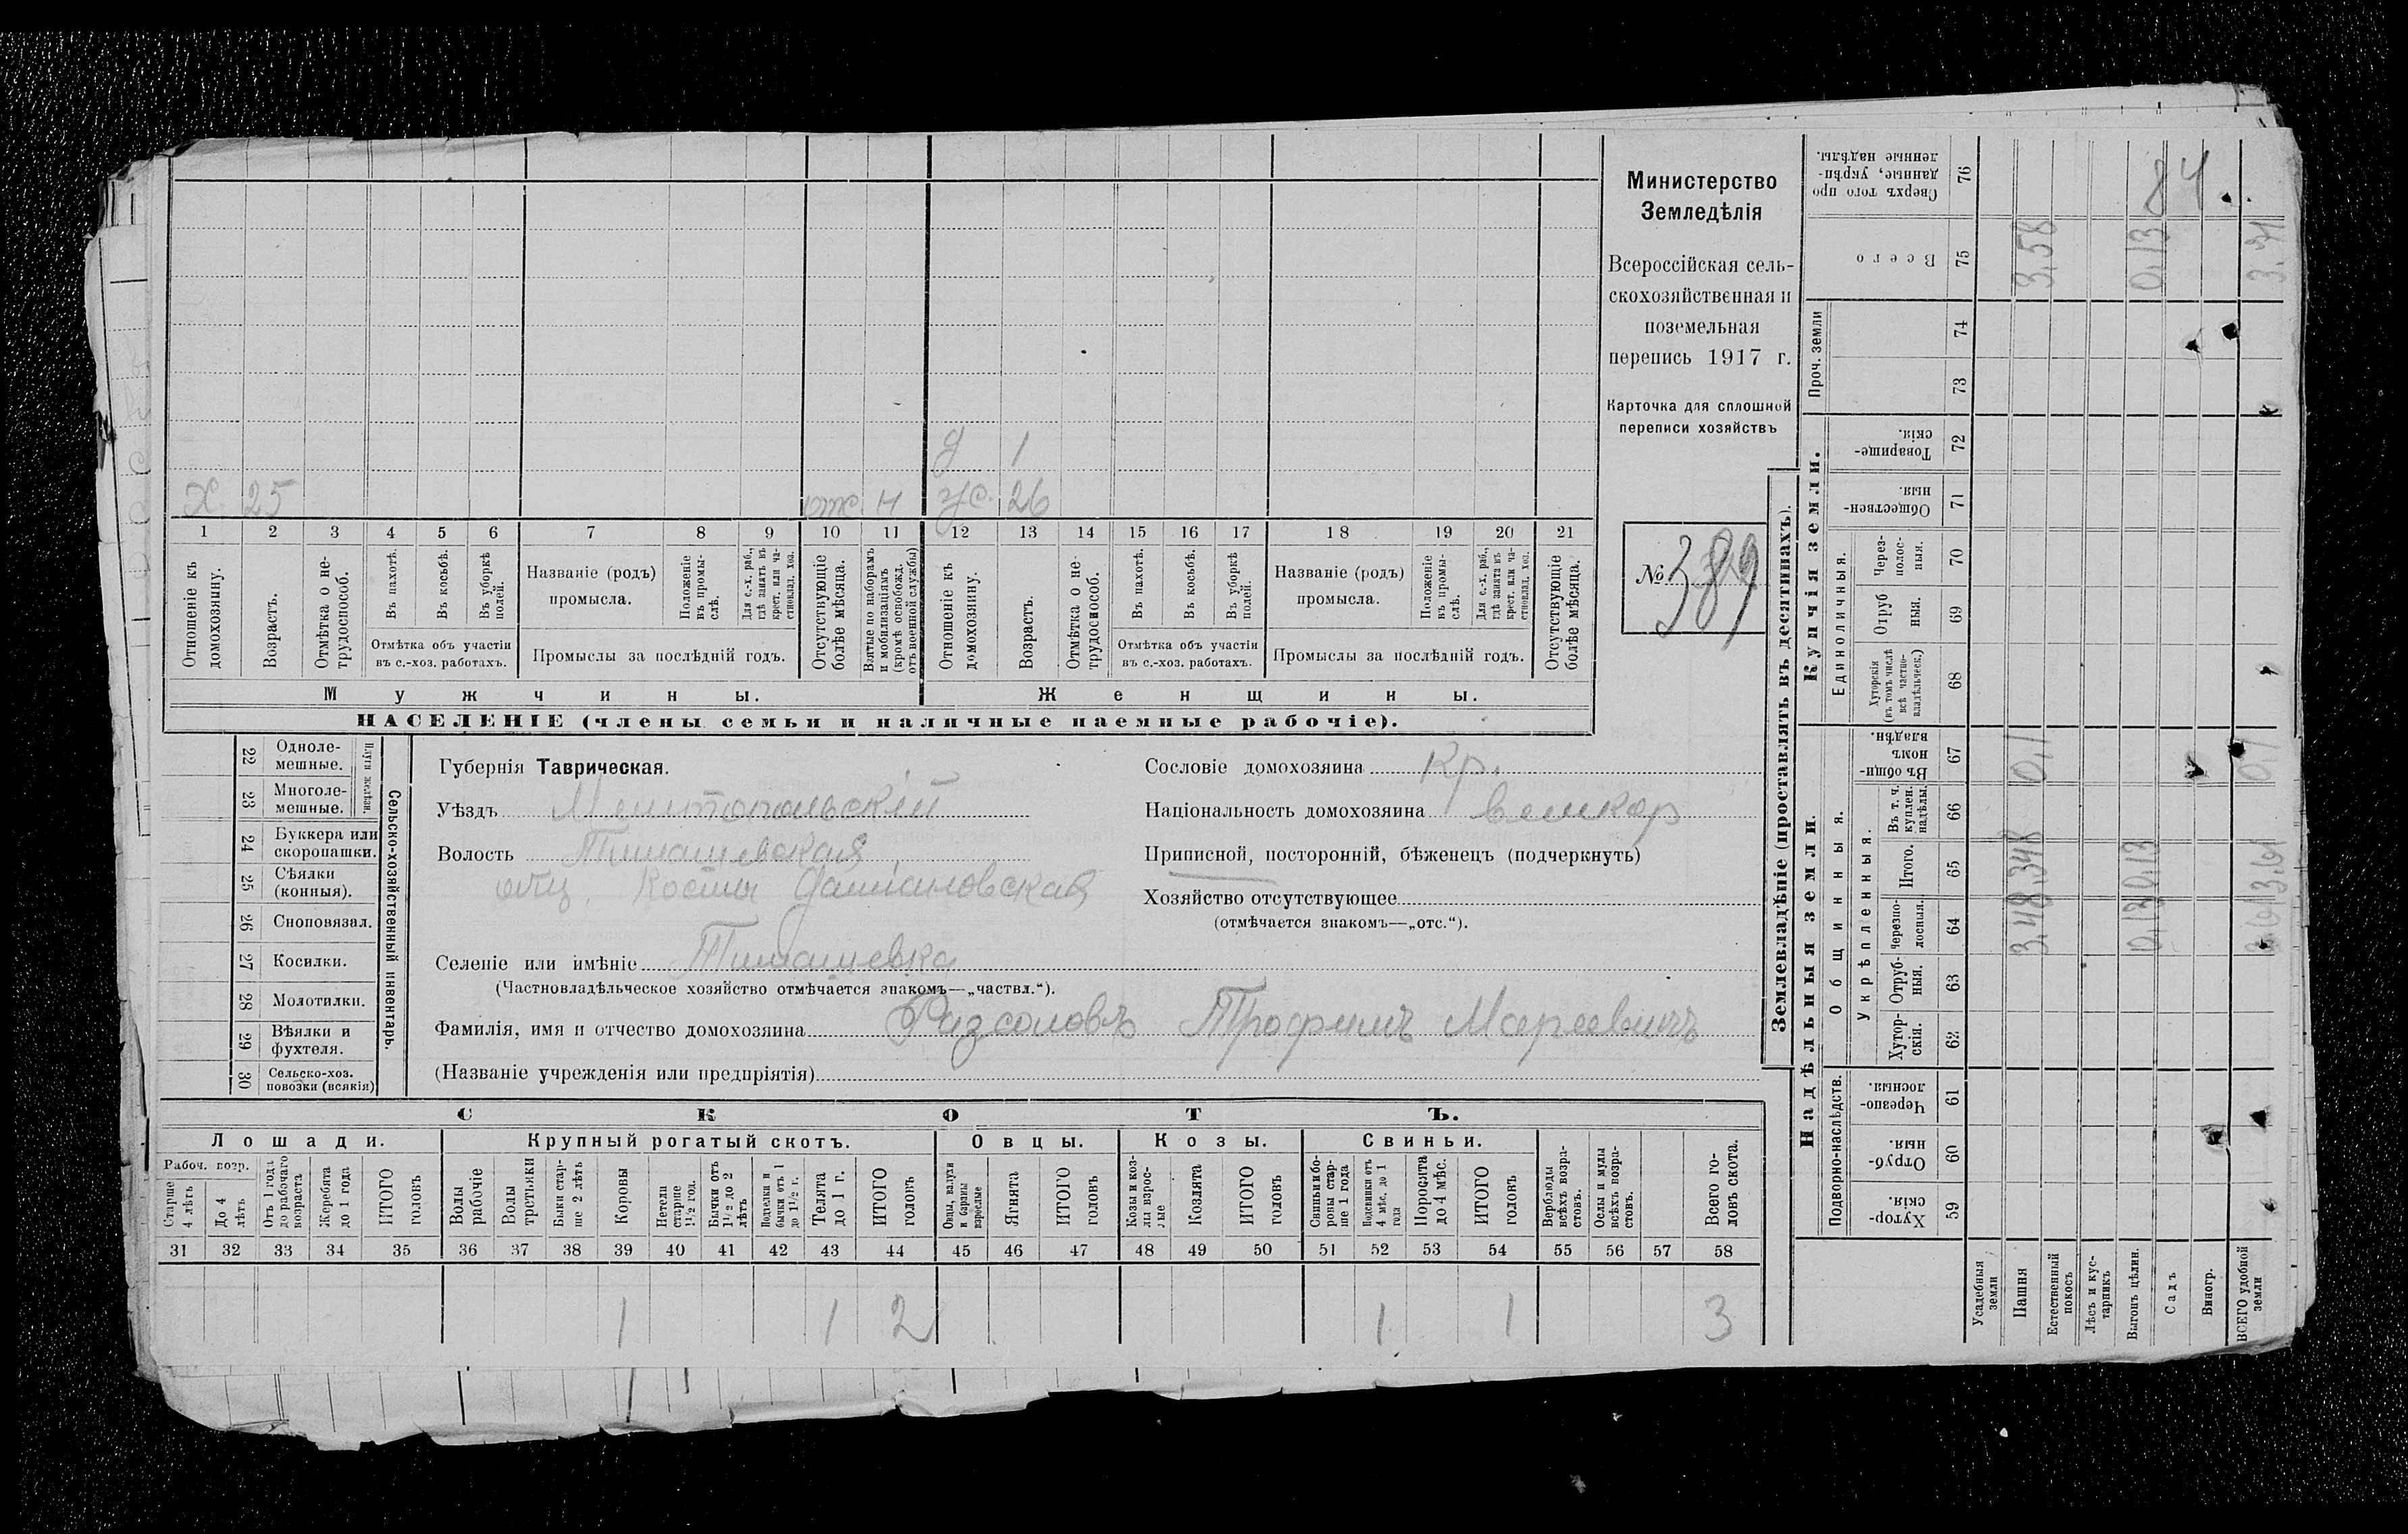 Х 25 отс Н ж. 26
д 1
1 2 3 4 5 6 7 8 9 10 11 12 13 14 15 16 17 18 19 20 21
Отношеніе къ домохозяину.
Возрастъ.
Отмѣтка о нетрудоспособ.
Въ пахотѣ.
Въ косьбѣ.
Въ уборкѣ полей.
Отмѣтка объ участіи въ с.-хоз. работахъ.
Названіе (родъ) промысла.
Положеніе въ промыслѣ.
Для с.-х. раб., гдѣ занятъ въ крест. или частновлад. хоз.
Промыслы за послѣдній годъ.
Отсутствующіе болѣе мѣсяца.
Взятые по наборамъ и мобилизаціямъ (кромѣ освобожд. отъ военной службы)
Отношеніе къ домохозяину.
Возрастъ.
Отмѣтка о нетрудоспособ.
Въ пахотѣ.
Въ косьбѣ.
Въ уборкѣ полей.
Отмѣтка объ участіи въ с.-хоз. работахъ.
Названіе (родъ) промысла.
Положеніе въ промыслѣ.
Для с.-х. раб., гдѣ занята въ крест. или частновлад. хоз.
Промыслы за послѣдній годъ.
Отсутствующіе болѣе мѣсяца.
Мужчины.
Женщины.
НАСЕЛЕНІЕ (члены семьи и наличные наемные рабочіе).
Министерство
Земледѣлія
Всероссійская сель-
скохозяйственная и
поземельная
перепись 1917 г.
Карточка для сплошной
переписи хозяйствъ
№ 389
22 Одноле-
мешные.
23 Многоле-
мешные.
24 Буккера или
скоропашки.
25 Сѣялки
(конныя).
26 Сноповязал.
27 Косилки.
28 Молотилки.
29 Вѣялки и
фухтеля.
30 Сельско-хоз.
повозки (всякія)
Сельско-хозяйственный инвентарь.
Губернія Таврическая.
Уѣздъ Мелитопольскій
Волость Тимашевская
общ. Косты
Селеніе или имѣніе Тимашевка
(Частновладѣльческое хозяйство отмѣчается знакомъ—„частвл.“).
Фамилія, имя и отчество домохозяина Трофимъ
(Названіе учрежденія или предпріятія)
Сословіе домохозяина кр.
Національность домохозяина великор
Приписной, посторонній, бѣженецъ (подчеркнуть)
Хозяйство отсутствующее
(отмѣчается знакомъ—„отс.“).
СКОТЪ.
Лошади. Крупный рогатый скотъ. Овцы. Козы. Свиньи.
Рабоч. возр.
Старше 4 лѣтъ
До 4 лѣтъ
Отъ 1 года до рабочаго возраста
Жеребята до 1 года
ИТОГО головъ
Волы рабочіе
Волы третьяки
Быки старше 2 лѣтъ
Коровы
Нетели старше 1 1/2 год.
Бычки отъ 1 1/2 до 2 лѣтъ
Подтелки и бычки отъ 1 до 1 1/2 г.
Телята до 1 г.
ИТОГО головъ
Овцы, валухи и бараны взрослые
Ягнята
ИТОГО головъ
Козы и козлы взрослые
Козлята
ИТОГО головъ
Свиньи и боровы старше 1 года
Подсвинки отъ 4 мѣс. до 1 года
Поросята до 4 мѣс.
ИТОГО головъ
Верблюды всѣхъ возрастовъ.
Ослы и мулы всѣхъ возрастовъ.
Всего головъ скота.
31 32 33 34 35 36 37 38 39 40 41 42 43 44 45 46 47 48 49 50 51 52 53 54 55 56 57 58
1 1 2 1 1 3
Землевладѣніе (проставлять въ десятинахъ).
Надѣльныя земли.
Купчія земли.
Проч. земли
Подворно-наслѣдств.
Общинныя.
Укрѣпленныя.
Единоличныя.
Хуторскія. 59
Отрубныя. 60
Черезполосныя. 61
Хуторскія. 62
Отрубныя. 63
Черезполосныя. 64
Итого. 65
Въ т. ч. куплен. надѣлы. 66
Въ общинномъ владѣн. 67
Хуторскія (въ томъ числѣ всѣ частновладѣльческ.) 68
Отрубныя. 69
Черезполосныя. 70
Общественныя. 71
Товарищескія. 72
73
74
Всего 75
Сверхъ того проданные, укрѣпленные надѣлы. 76
Усадебныя земли
Пашня 3,48 3,48 0,1 3,58
Естественный покосъ
Лѣсъ и кустарникъ
Выгонъ цѣлин. 0,13 0,13 0,13
Садъ
Виногр.
ВСЕГО удобной земли 3,61 3,61 0,1 3,71
84